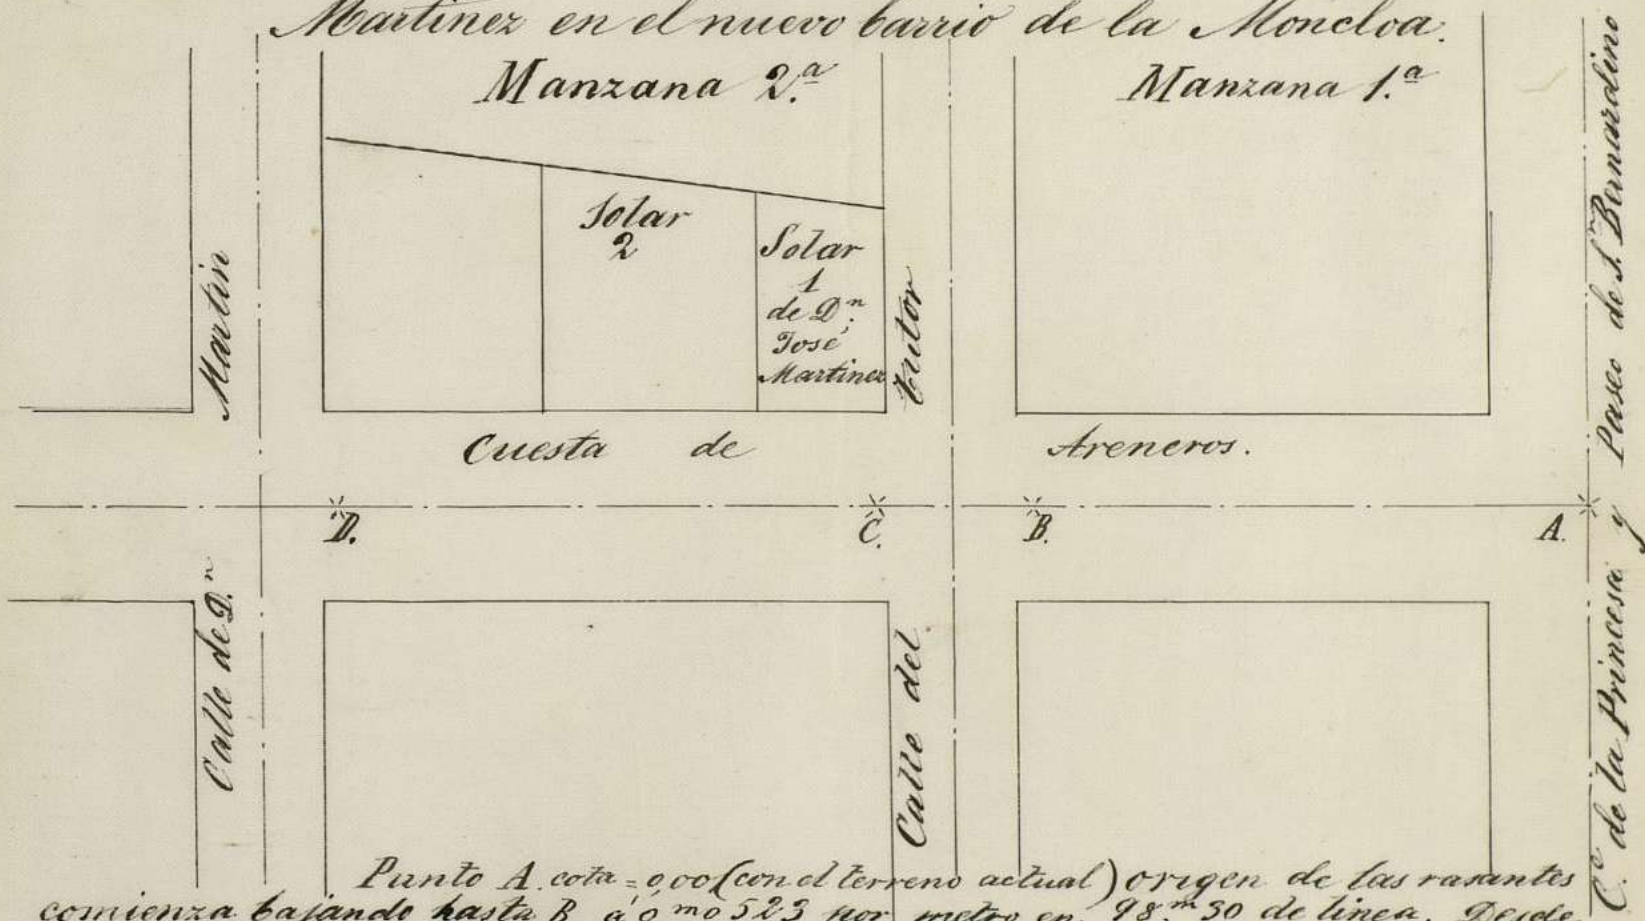 Martinez en el nuevo barrio de la Moncloa.
Manzana 2.ª
Manzana 1.ª
Solar
2
Solar
1
de D.n
José
Martinez
Calle de D.n Martin
Calle del tutor
C.e de la Princesa y Paseo de S.n Bernardino
Cuesta de Areneros.
D.
C.
B.
A.
Punto A. cota = 0,00 (con el terreno actual) origen de las rasantes
comienza bajando hasta B á 0,mo523 por metro en 98,m30 de linea. Desde